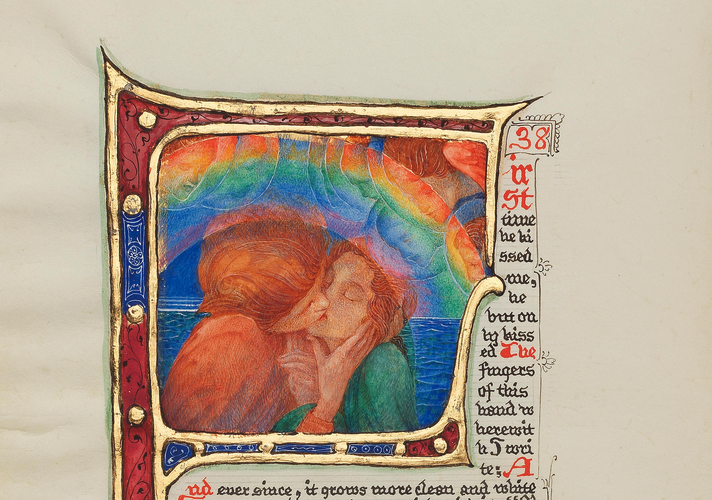 38
irst
time
he ki
ssed
me,
he
but on
ly kiss
ed The
fingers
of this
hand w
herewit
h I wri
te; A
nd ever since, it grows more clean and white